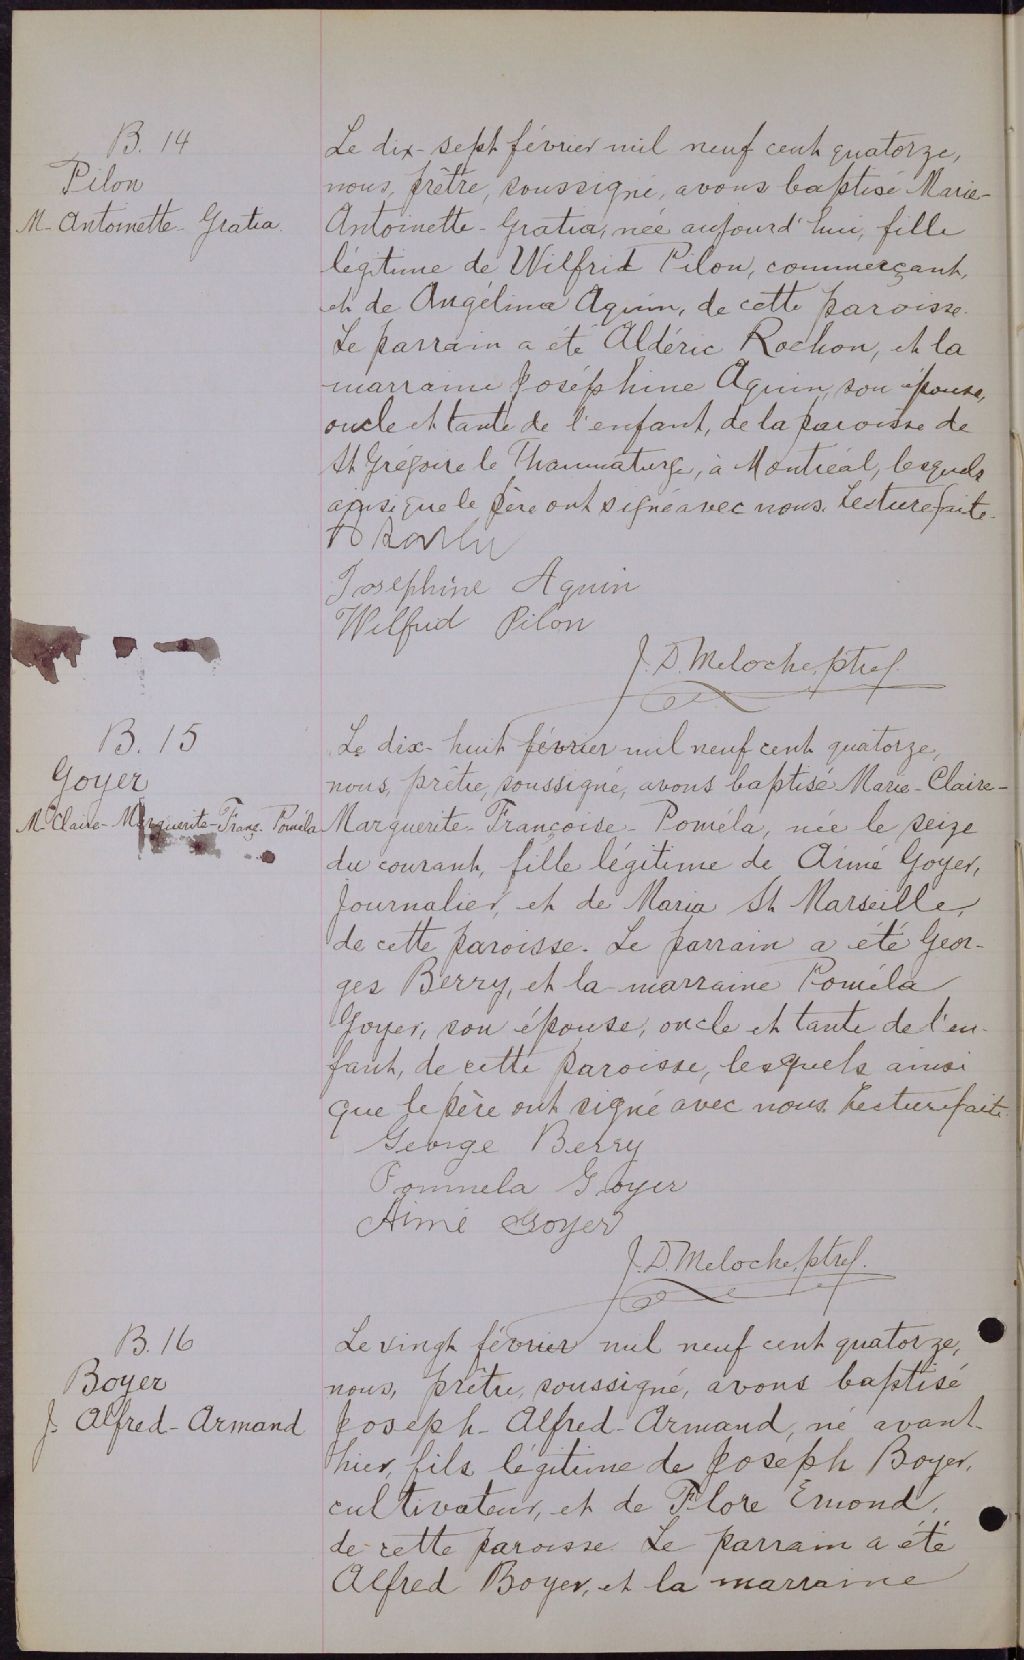 B. 14
Pilon
M- Antoinette- Gratia.
Le dix-sept février mil neuf cent quatorze,
nous, prêtre, soussigné, avons baptisé Marie-
Antoinette-Gratia, née aujourd'hui, fille
légitime de Wilfrid Pilon, commerçant,
et de Angélina Aquin, de cette paroisse.
Le parrain a été Aldéric Rochon, et la
marraine Joséphine Aquin, son épouse,
oncle et tante de l'enfant, de la paroisse de
St Grégoire le Thaumaturge, à Montréal, lesquels
ainsi que le père ont signé avec nous. Lecture faite.
Josephine Aquin
Wilfrid Pilon
J. D. Meloche, ptre
B. 15
Goyer
M- Claire- Marguerite- Franç. Poméla
Le dix-huit février mil neuf cent quatorze,
nous, prêtre, soussigné, avons baptisé Marie-Claire-
Marguerite-Françoise-Poméla, née le seize
du courant, fille légitime de Aimé Goyer,
journalier, et de Maria St Marseille,
de cette paroisse. Le parrain a été Geor-
ges Berry, et la marraine Poméla
Goyer, son épouse, oncle et tante de l'en-
fant, de cette paroisse, lesquels ainsi
que le père ont signé avec nous. Lecture faite.
George Berry
Pommela Goyer
Aimé Goyer
J. D. Meloche, ptre
B. 16
Boyer
J. Alfred-Armand
Le vingt février mil neuf cent quatorze,
nous, prêtre, soussigné, avons baptisé
Joseph-Alfred-Armand, né avant-
hier, fils légitime de Joseph Boyer,
cultivateur, et de Flore Émond,
de cette paroisse. Le parrain a été
Alfred Boyer, et la marraine